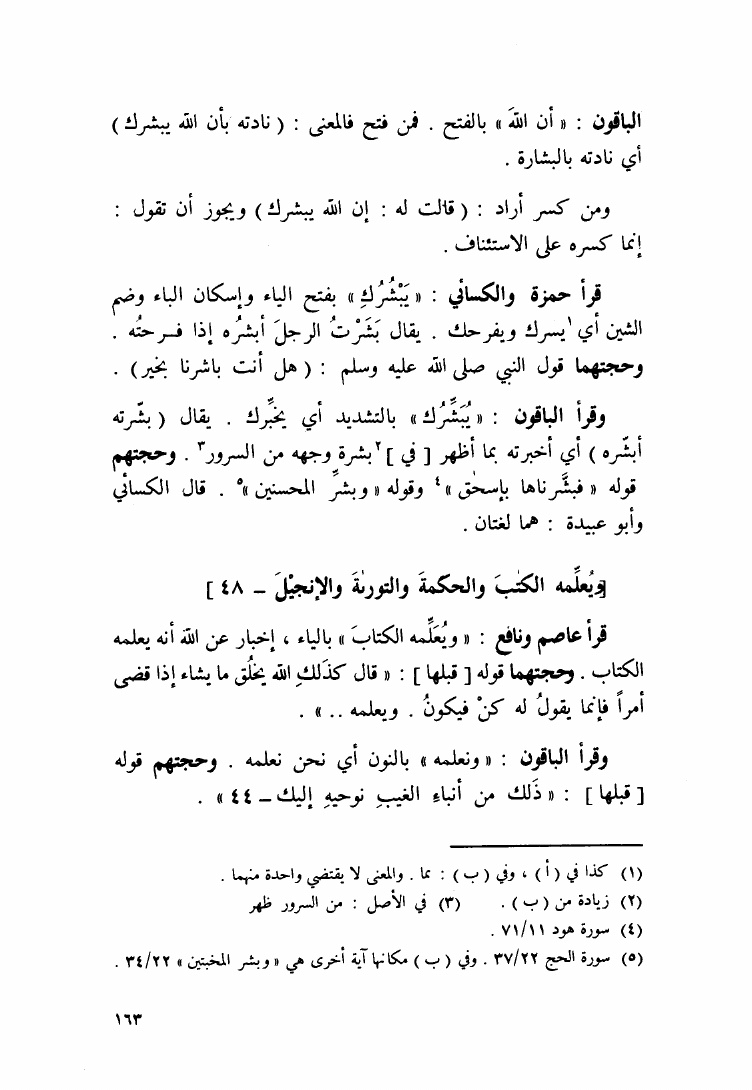 الباقون : « أن اللهَ » بالفتح . فمن فتح فالمعنى : ( نادته بأن الله يبشرك )
أي نادته بالبشارة .
ومن كسر أراد : ( قالت له : إن الله يبشرك ) ويجوز أن تقول :
إنما كسره على الاستئناف .
قرأ حمزة والكسائي : « يَبْشُرُكِ » بفتح الياء وإسكان الباء وضم
الشين أي ١ يسرك ويفرحك . يقال بَشَرْتُ الرجلَ أبشُره إذا فـرحتُه .
وحجتهما قول النبي صلى الله عليه وسلم : ( هل أنت باشرنا بخير ) .
وقرأ الباقون : « يُبَشِّرُك » بالتشديد أي يخبِّرك . يقال ( بشّرته
أبشّره ) أي أخبرته بما أظهر [ في ] ٢ بشرة وجهه من السرور ٣ . وحجتهم
قوله « فبشَّرناها بإسحٰق » ٤ وقوله « وبشرِّ المحسنين » ٥ . قال الكسائي
وأبو عبيدة : هما لغتان .
[ويُعلِّمه الكتٰبَ والحكمةَ والتورىٰةَ والإنجيْلَ – ٤٨ ]
قرأ عاصم ونافع : « ويُعَلِّمه الكتابَ » بالياء ، إخبار عن الله أنه يعلمه
الكتاب . وحجتهما قوله [ قبلها ] : « قال كذَلكِ الله يخلُق ما يشاء إذا قضى
أمراً فإنما يقولُ له كنْ فيكونُ . ويعلمه .. » .
وقرأ الباقون : « ونعلمه » بالنون أي نحن نعلمه . وحجتهم قوله
[ قبلها ] : « ذَلك من أنباءِ الغيبِ نوحيهِ إليك – ٤٤ » .
(١) كذا في ( أ ) ، وفي ( ب ) : بما . والمعنى لا يقتضي واحدة منهما .
(٢) زيادة من ( ب ) . (٣) في الأصل : من السرور ظهر
(٤) سورة هود ٧١/١١ .
(٥) سورة الحج ٣٧/٢٢ . وفي ( ب ) مكانها آية أخرى هي « وبشر المخبتين » ٣٤/٢٢ .
١٦٣